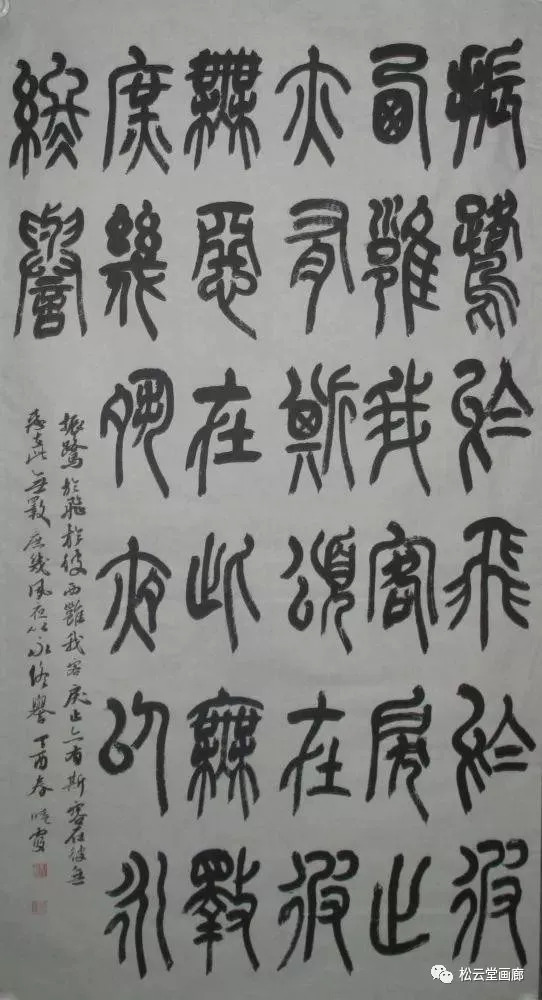 振鷺於飛於彼
西雝我客戾止
亦有斯頌在彼
無惡在此無斁
庶幾夙夜以永
終譽
振鷺於飛於彼西雝我客戾止亦有斯容在彼無
惡在此無斁庶幾夙夜以永終譽 丁酉春
松云堂画廊